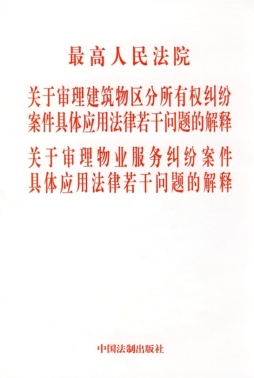 最高人民法院
关于审理建筑物区分所有权纠纷
案件具体应用法律若干问题的解释
关于审理物业服务纠纷案件
具体应用法律若干问题的解释
中国法制出版社